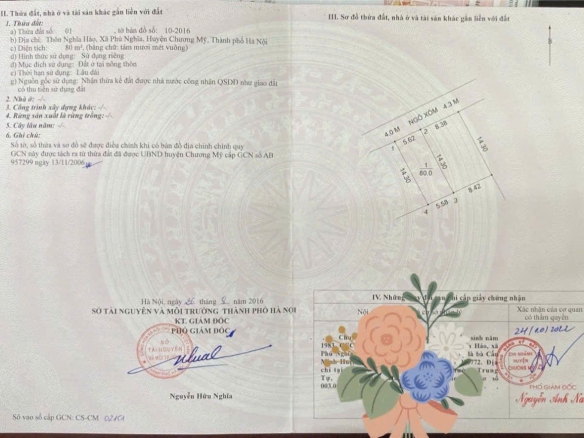 II. Thửa đất, nhà ở và tài sản khác gắn liền với đất
1. Thửa đất:
a) Thửa đất số: 01 , tờ bản đồ số: 10-2016
b) Địa chỉ: Thôn Nghĩa Hảo, Xã Phú Nghĩa, Huyện Chương Mỹ, Thành phố Hà Nội
c) Diện tích: 80 m², (bằng chữ: tám mươi mét vuông)
d) Hình thức sử dụng: Sử dụng riêng
đ) Mục đích sử dụng: Đất ở tại nông thôn
e) Thời hạn sử dụng: Lâu dài
g) Nguồn gốc sử dụng: Nhận thừa kế đất được nhà nước công nhận QSDĐ như giao đất
có thu tiền sử dụng đất
2. Nhà ở: -/-
3. Công trình xây dựng khác: -/-
4. Rừng sản xuất là rừng trồng: -/-
5. Cây lâu năm: -/-
6. Ghi chú:
Số tờ, số thửa và sơ đồ sẽ được điều chỉnh khi có bản đồ địa chính chính quy
GCN này được tách ra từ thửa đất đã được UBND huyện Chương Mỹ cấp GCN số AB
957299 ngày 13/11/2006
Hà Nội, ngày tháng năm 2016
SỞ TÀI NGUYÊN VÀ MÔI TRƯỜNG THÀNH PHỐ HÀ NỘI
KT. GIÁM ĐỐC
PHÓ GIÁM ĐỐC
SỞ
TÀI NGUYÊN
Nguyễn Hữu Nghĩa
Số vào sổ cấp GCN: CS-CM
III. Sơ đồ thửa đất, nhà ở và tài sản khác gắn liền với đất
B
4.0 M NGÕ XÓM 4.3 M
1 5.62 2 8.38
14.30 1 14.30 14.30
80.0
4 5.58 3 8.42
IV. Những thay đổi sau khi cấp giấy chứng nhận
Xác nhận của cơ quan
có thẩm quyền
sinh năm
1983
Hảo, xã
Phú
là bà Cấn
Minh
772. Địa
chỉ
Trung
Tự,
số
003.0
24/10/2022
CHI NHÁNH
HUYỆN
CHƯƠNG MỸ
PHÓ GIÁM ĐỐC
Nguyễn Anh